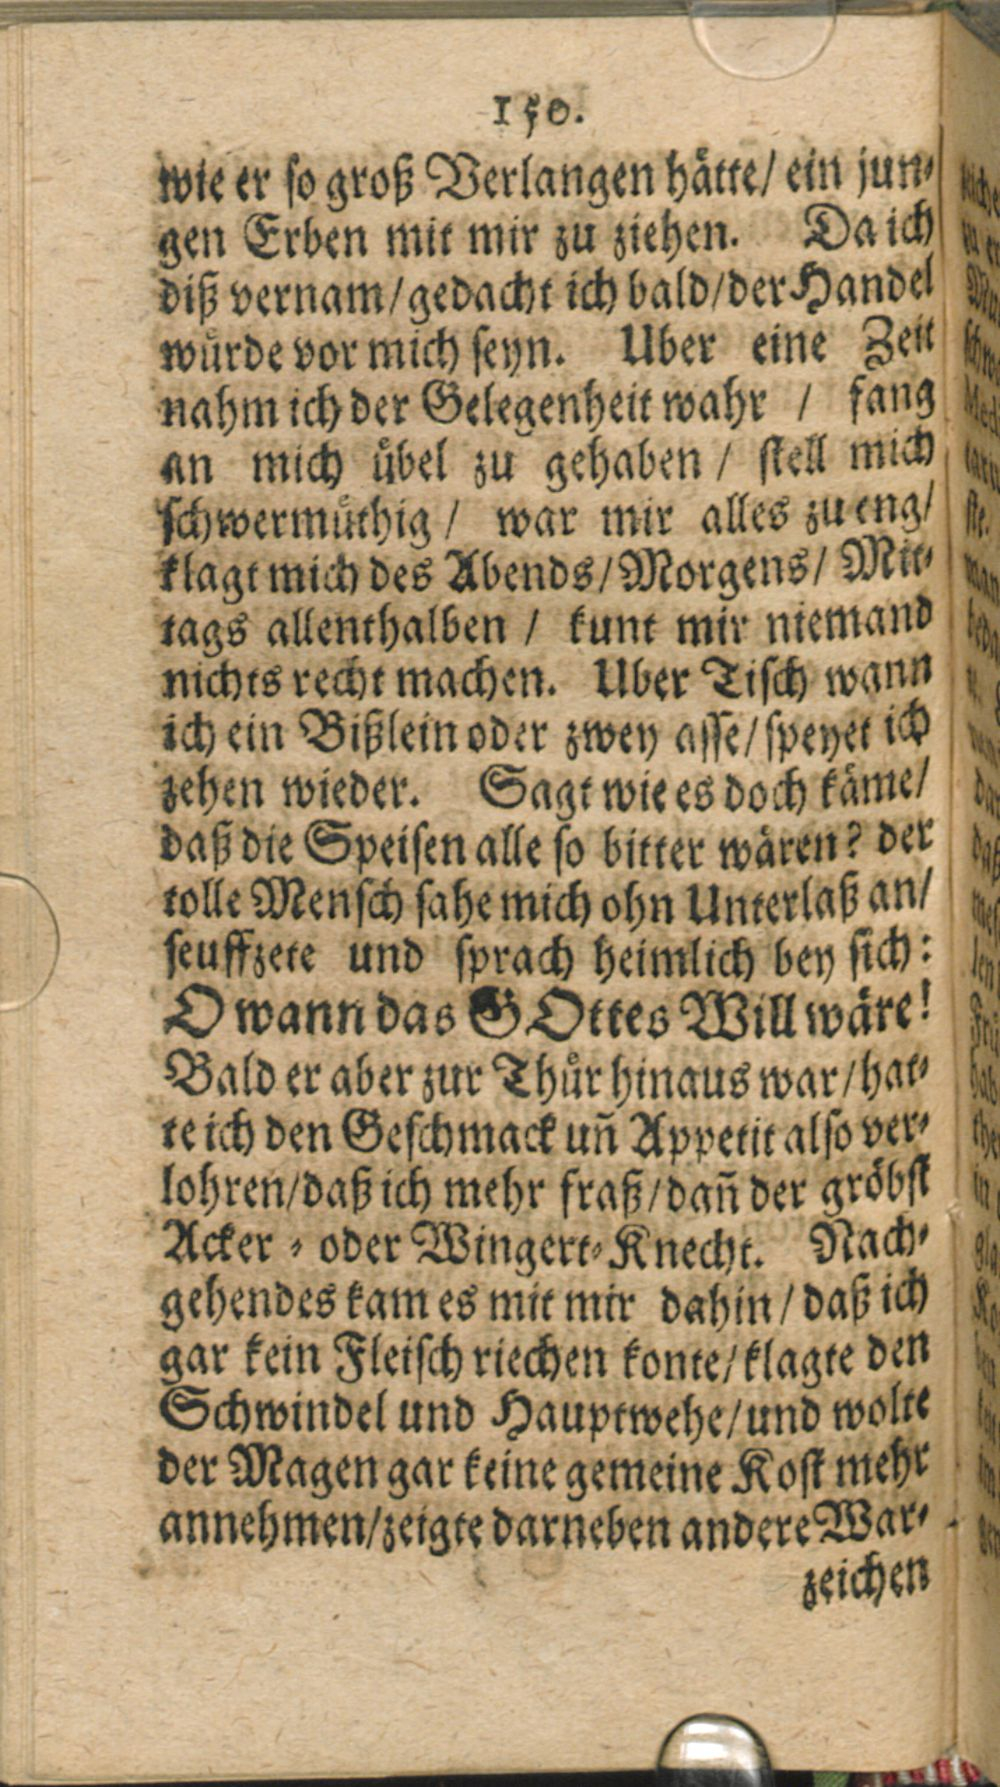 150.
wie er so groß Verlangen hätte/ ein jun-
gen Erben mit mir zu ziehen. Da ich
diß vernam/gedacht ich bald/der Handel
würde vor mich seyn. Uber eine Zeit
nahm ich der Gelegenheit wahr / fang
an mich übel zu gehaben / stell mich
schwermüthig / war mir alles zu eng/
klagt mich des Abends/Morgens/ Mit-
tags allenthalben / kunt mir niemand
nichts recht machen. Uber Tisch wann
ich ein Bißlein oder zwey asse/speyet ich
zehen wieder. Sagt wie es doch käme/
daß die Speisen alle so bitter wären? der
tolle Mensch sahe mich ohn Unterlaß an/
seuffzete und sprach heimlich bey sich:
O wann das GOttes Will wäre!
Bald er aber zur Thür hinaus war/hat-
te ich den Geschmack uñ Appetit also ver-
lohren/daß ich mehr fraß/dañ der gröbst
Acker - oder Wingert-Knecht. Nach-
gehendes kam es mit mir dahin/daß ich
gar kein Fleisch riechen konte/klagte den
Schwindel und Hauptwehe/und wolte
der Magen gar keine gemeine Kost mehr
annehmen/zeigte darneben andere War-
zeichen